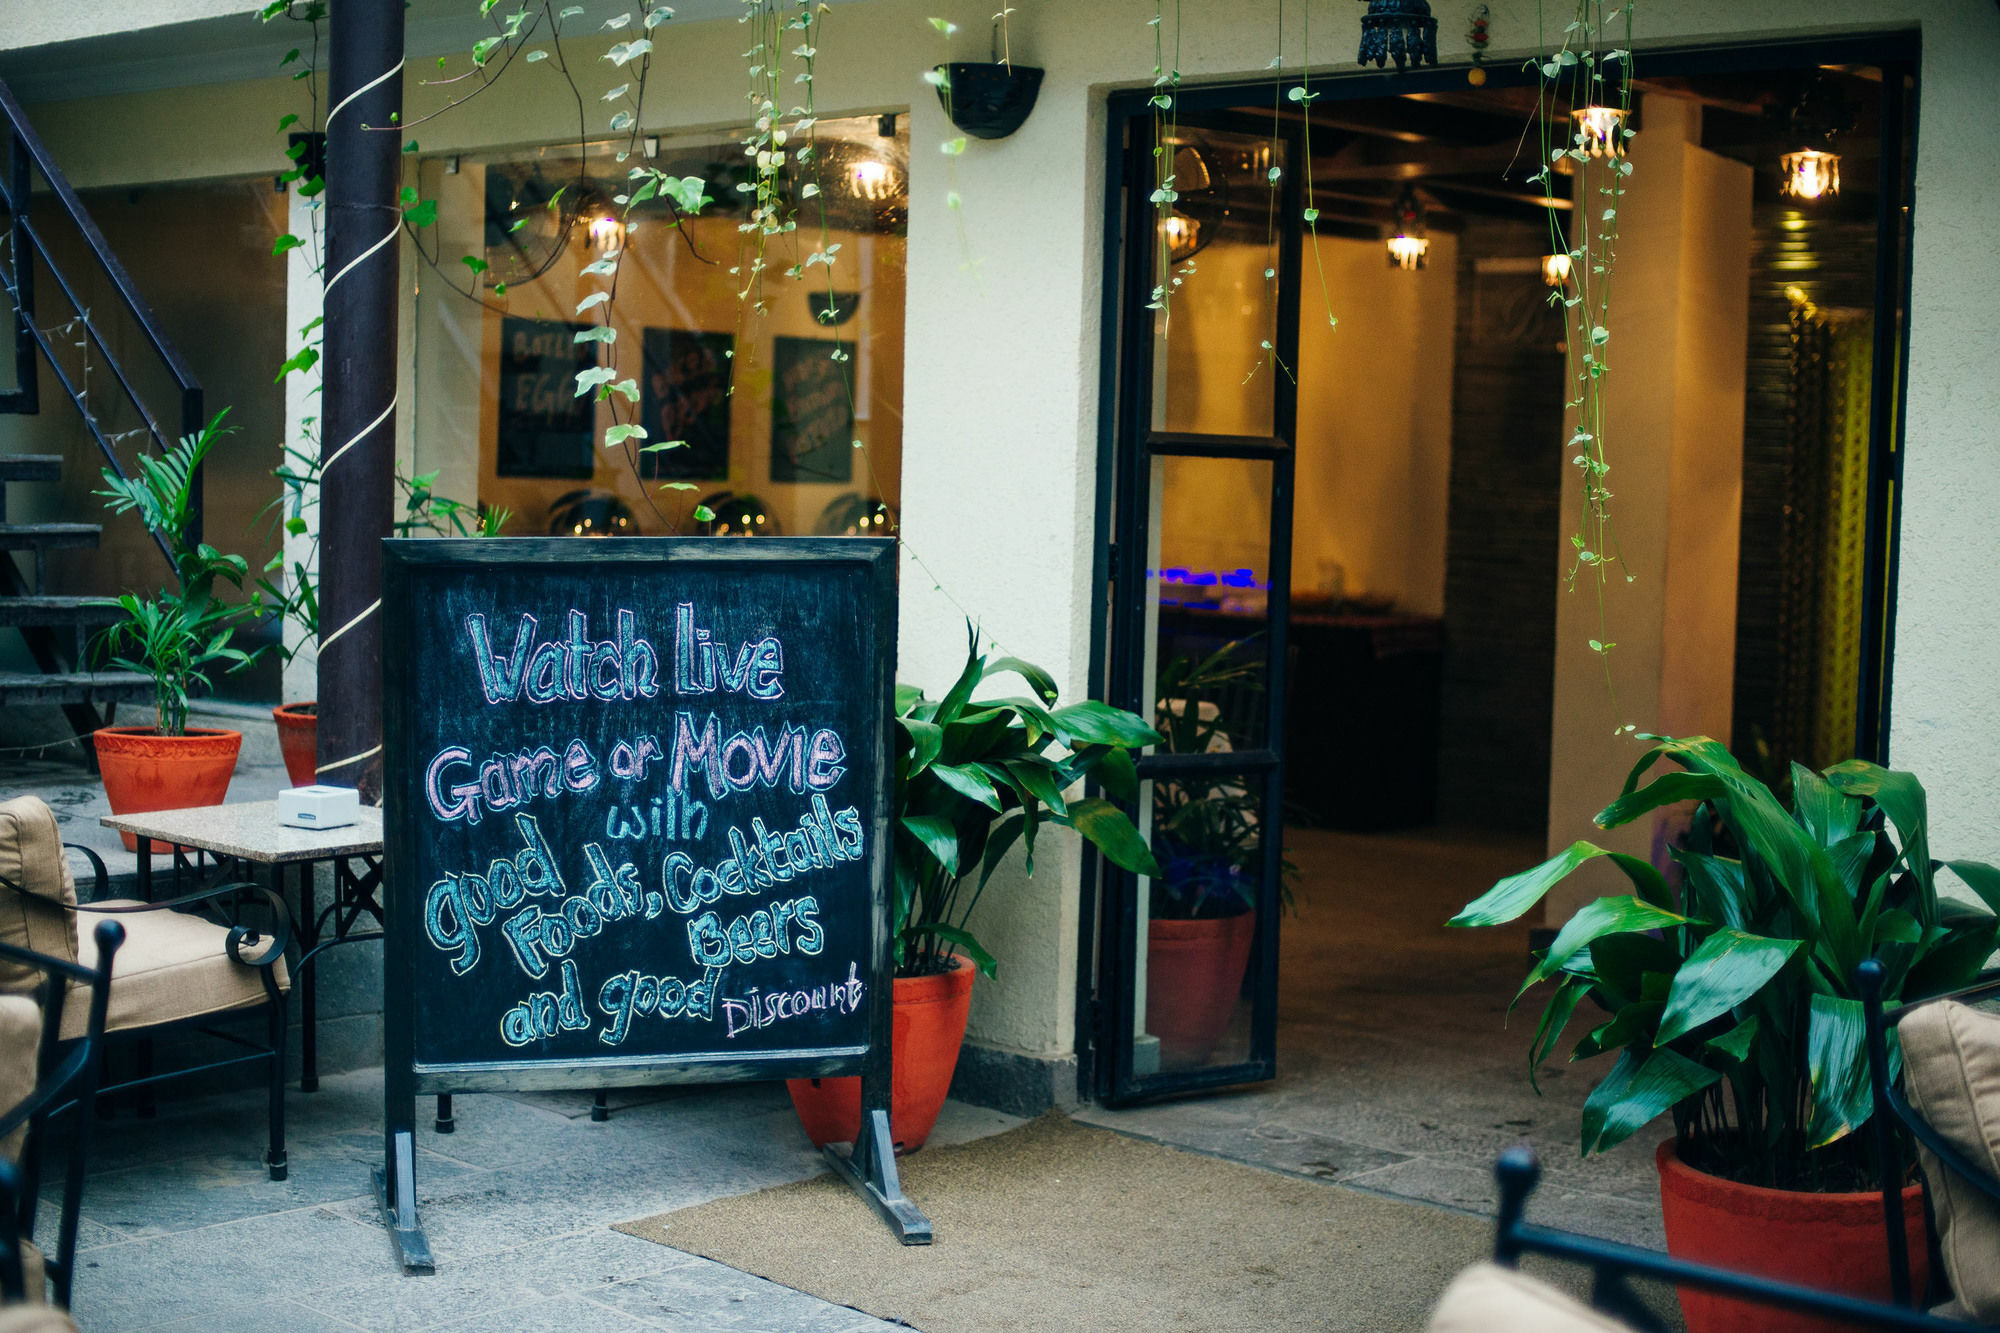 Watch live
Game or Movie
with
good
Foods, Cocktails
Beers
and good Discounts